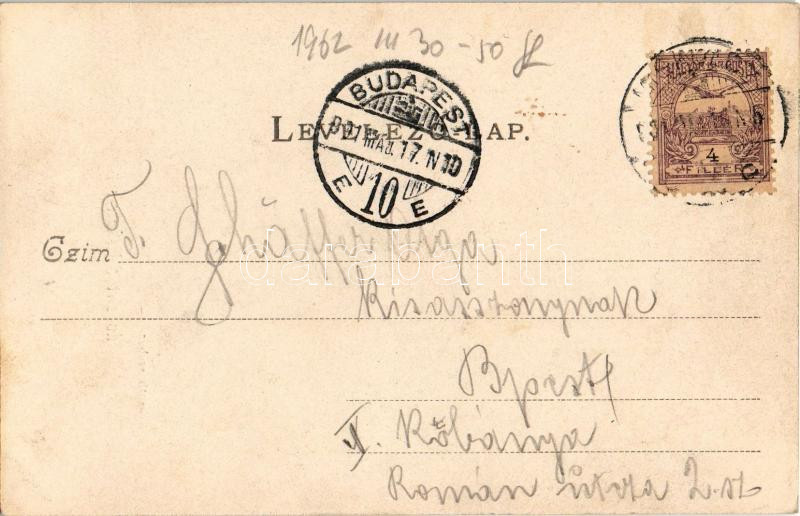 1962 III 30 - 50
BUDAPEST
LEVELEZŐ-LAP.
MAJ. 17. N 10
10
E E
4
FILLÉR
Czim T. Schäffer Olga
darabanth
Kisasszonynak
Bpest
X. Kőbánya
Román utcza 2. sz